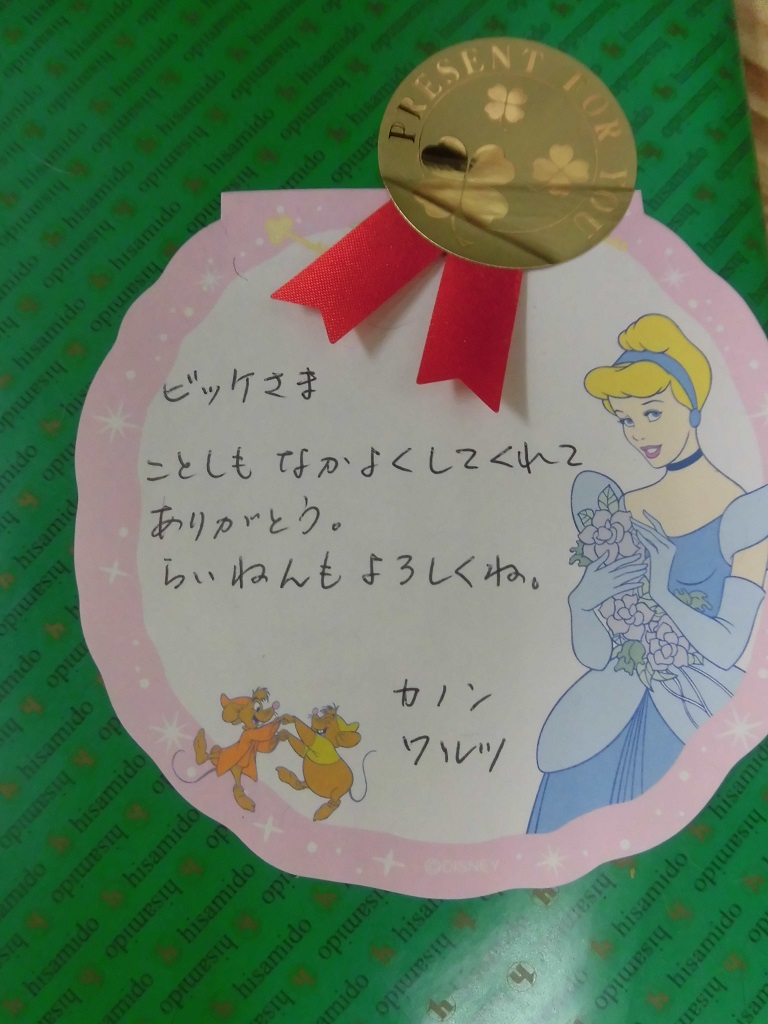 PRESENT FOR YOU
ビッケさま
ことしも なかよくしてくれて
ありがとう。
らいねんも よろしくね。
カノン
ワルツ
©DISNEY
hisamido